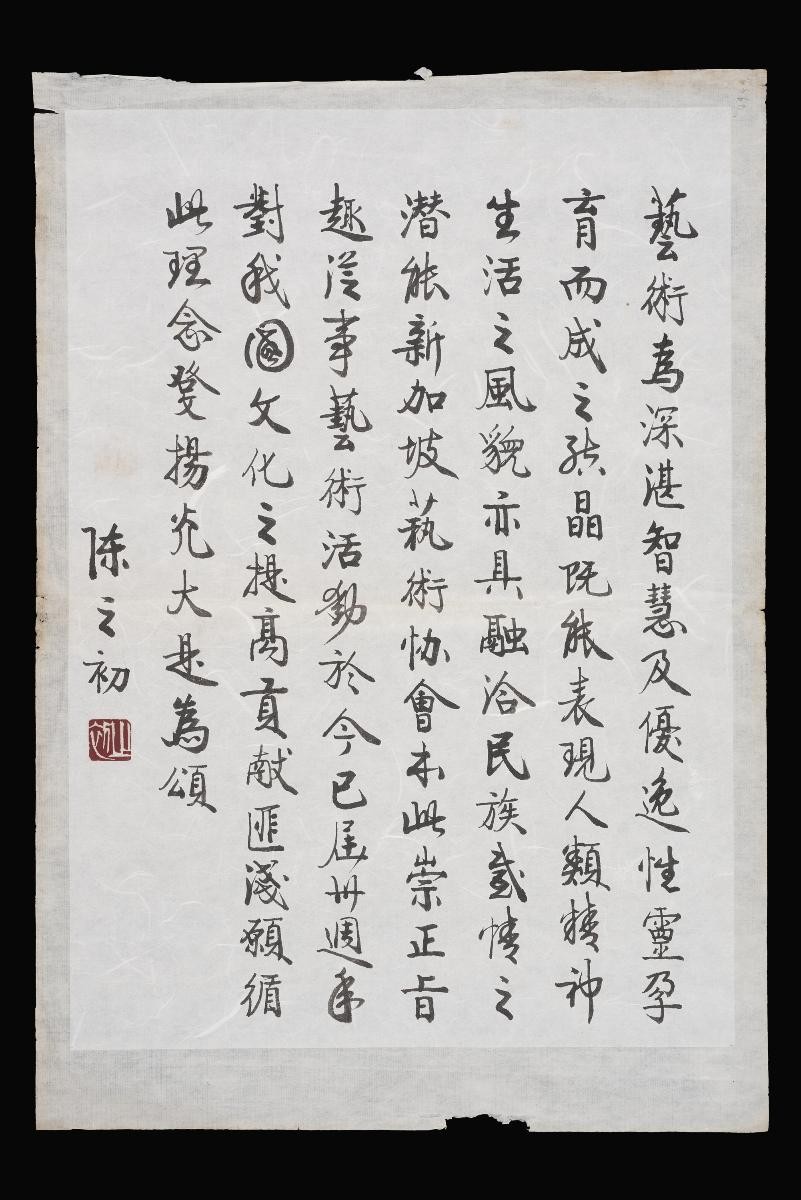 藝術為深湛智慧及優逸性靈孕
育而成之結晶既能表現人類精神
生活之風貌亦具融洽民族感情之
潜能新加坡藝術協會本此崇正旨
趣從事藝術活動於今已屆卅週年
對我國文化之提高貢献匪淺願循
此理念發揚光大是為頌
陳之初
之初